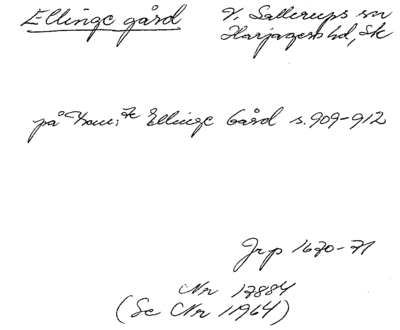 Ellinge gård
V. Sallerups sn
Harjagers hd, Sk
på Ellinge Gård s. 909-912
Jrp 1670-71
Nr 17884
(Se Nr 11964)